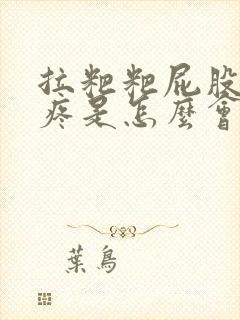 拉粑粑屁股
疼是怎麼會
葉鳥